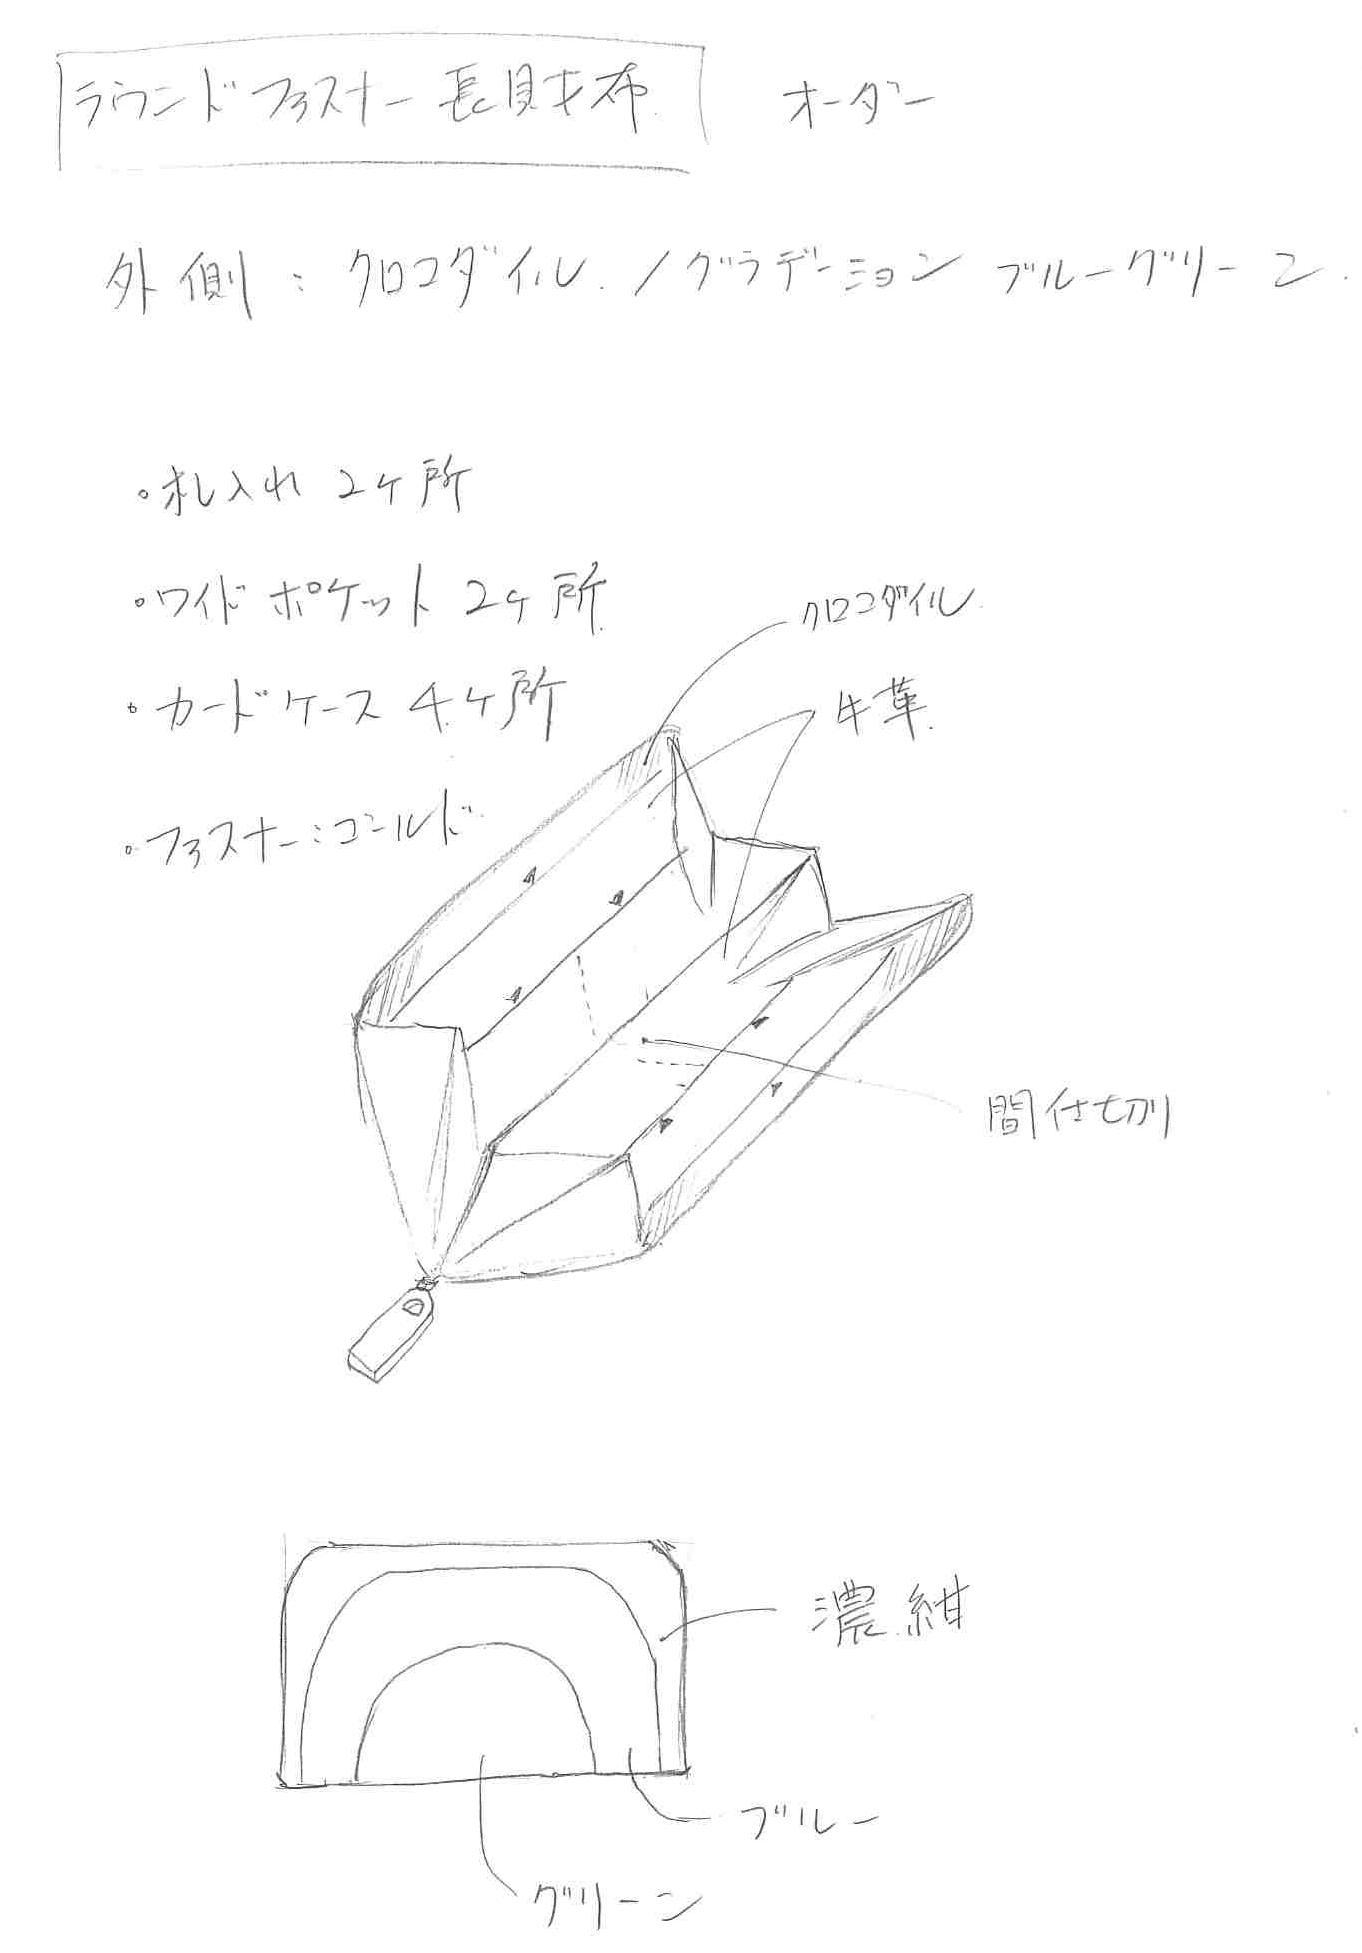 ラウンドファスナー長財布 オーダー
外側：クロコダイル / グラデーション ブルーグリーン
・札入れ 2ヶ所
・ワイドポケット 2ヶ所
クロコダイル
・カードケース 4ヶ所
牛革
・ファスナー：ゴールド
間仕切り
濃紺
ブルー
グリーン